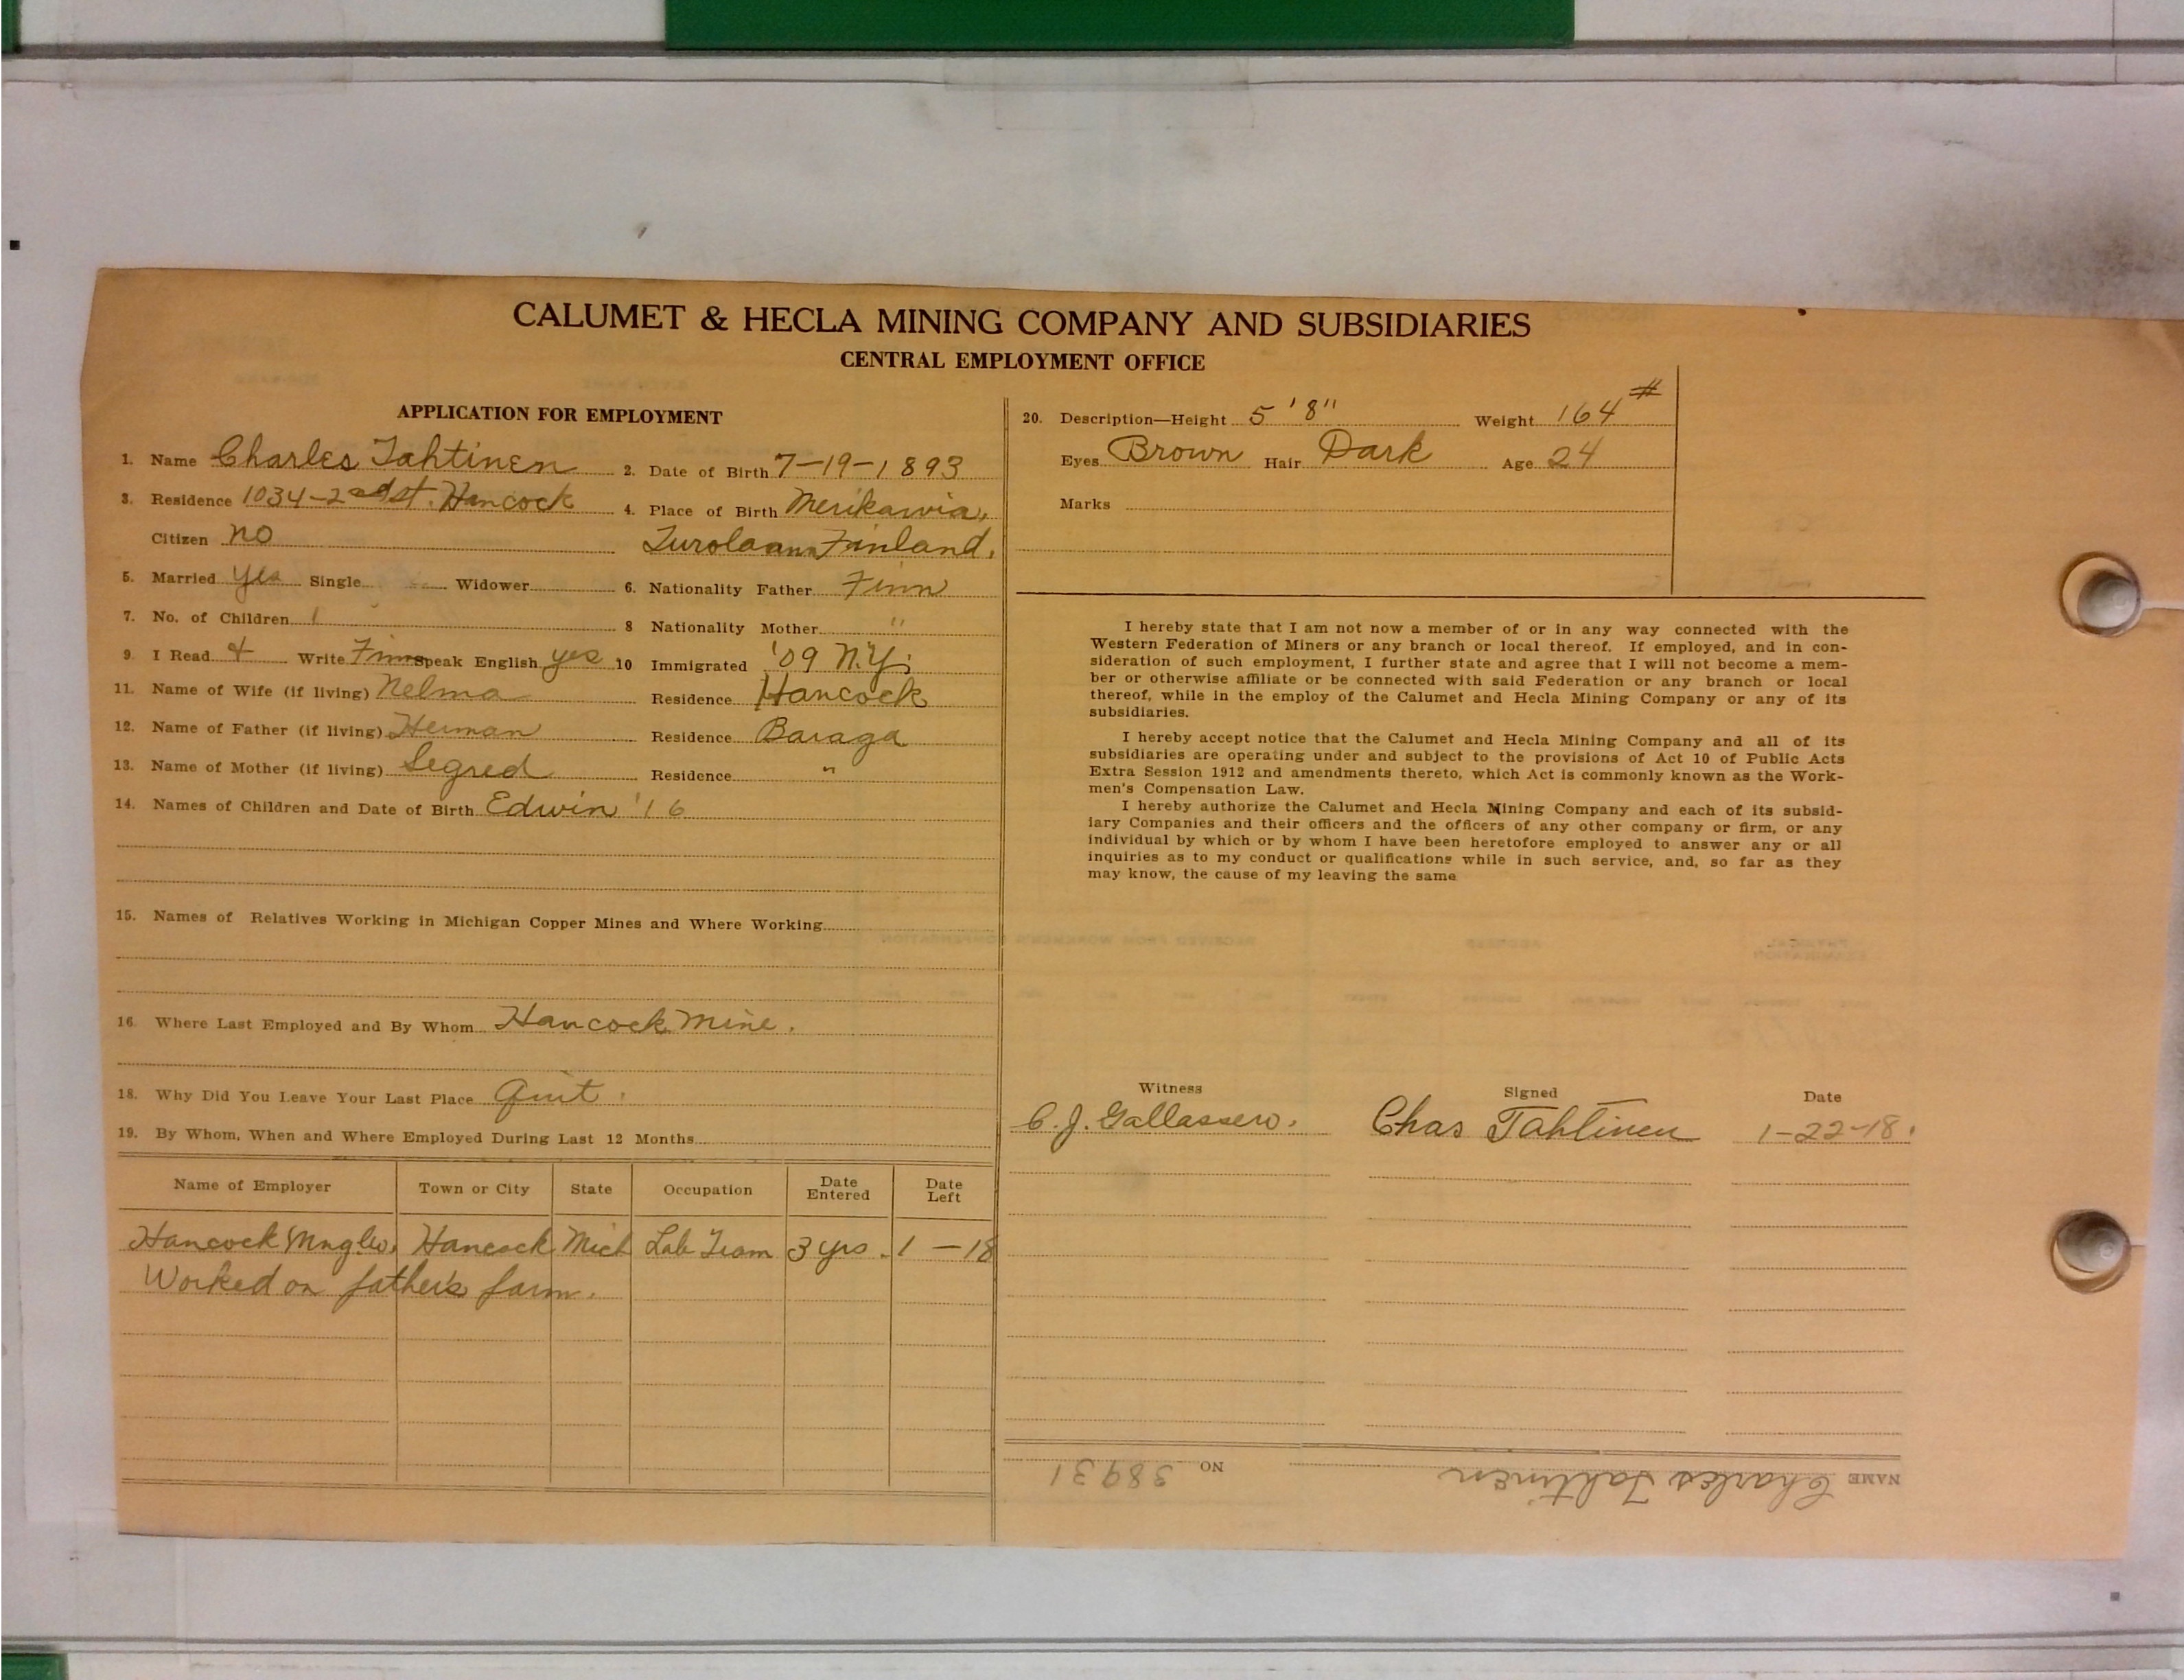 CALUMET & HECLA MINING COMPANY AND SUBSIDIARIES
CENTRAL EMPLOYMENT OFFICE
APPLICATION FOR EMPLOYMENT
1. Name Charles Tahtinen 2. Date of Birth 7-19-1893
3. Residence 1034-2nd st. Hancock 4. Place of Birth Merikarvia,
Citizen no Finland.
5. Married yes Single Widower 6. Nationality Father Finn
7. No. of Children 1 8 Nationality Mother "
9. I Read & Write Finn Speak English yes 10 Immigrated '09 N.Y.
11. Name of Wife (if living) Nelma Residence Hancock
12. Name of Father (if living) Herman Residence Baraga
13. Name of Mother (if living) Segred Residence "
14. Names of Children and Date of Birth Edwin '16
15. Names of Relatives Working in Michigan Copper Mines and Where Working
16. Where Last Employed and By Whom Hancock Mine.
18. Why Did You Leave Your Last Place Quit.
19. By Whom, When and Where Employed During Last 12 Months
Name of Employer Town or City State Occupation Date Entered Date Left
Hancock Mng Co. Hancock Mich Lab Tram 3 yrs. 1-18
Worked on father's farm.
20. Description—Height 5'8" Weight 164#
Eyes Brown Hair Dark Age 24
Marks
I hereby state that I am not now a member of or in any way connected with the
Western Federation of Miners or any branch or local thereof. If employed, and in con-
sideration of such employment, I further state and agree that I will not become a mem-
ber or otherwise affiliate or be connected with said Federation or any branch or local
thereof, while in the employ of the Calumet and Hecla Mining Company or any of its
subsidiaries.
I hereby accept notice that the Calumet and Hecla Mining Company and all of its
subsidiaries are operating under and subject to the provisions of Act 10 of Public Acts
Extra Session 1912 and amendments thereto, which Act is commonly known as the Work-
men's Compensation Law.
I hereby authorize the Calumet and Hecla Mining Company and each of its subsid-
iary Companies and their officers and the officers of any other company or firm, or any
individual by which or by whom I have been heretofore employed to answer any or all
inquiries as to my conduct or qualifications while in such service, and, so far as they
may know, the cause of my leaving the same
Witness Signed Date
C. J. Gallassero. Chas Tahtinen 1-22-18.
NAME Charles Tahtinen NO 38931